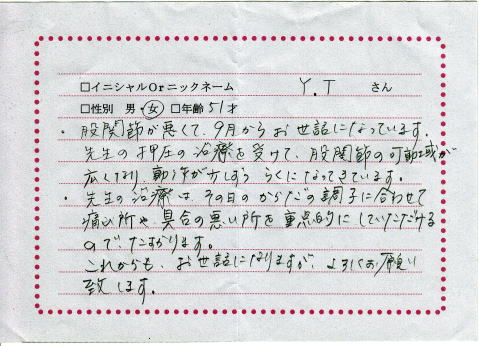 □イニシャルOrニックネーム Y.T さん
□性別 男・女 □年齢 51才
・股関節が悪くて、9月からお世話になっています。
先生の押圧の治療を受けて、股関節の可動域が
広くなり、動作が少しずつらくになってきています。
・先生の治療は、その日のからだの調子に合わせて
痛い所や、具合の悪い所を重点的にしていただける
のでたすかります。
これからも、お世話になりますが、よろしくお願い
致します。